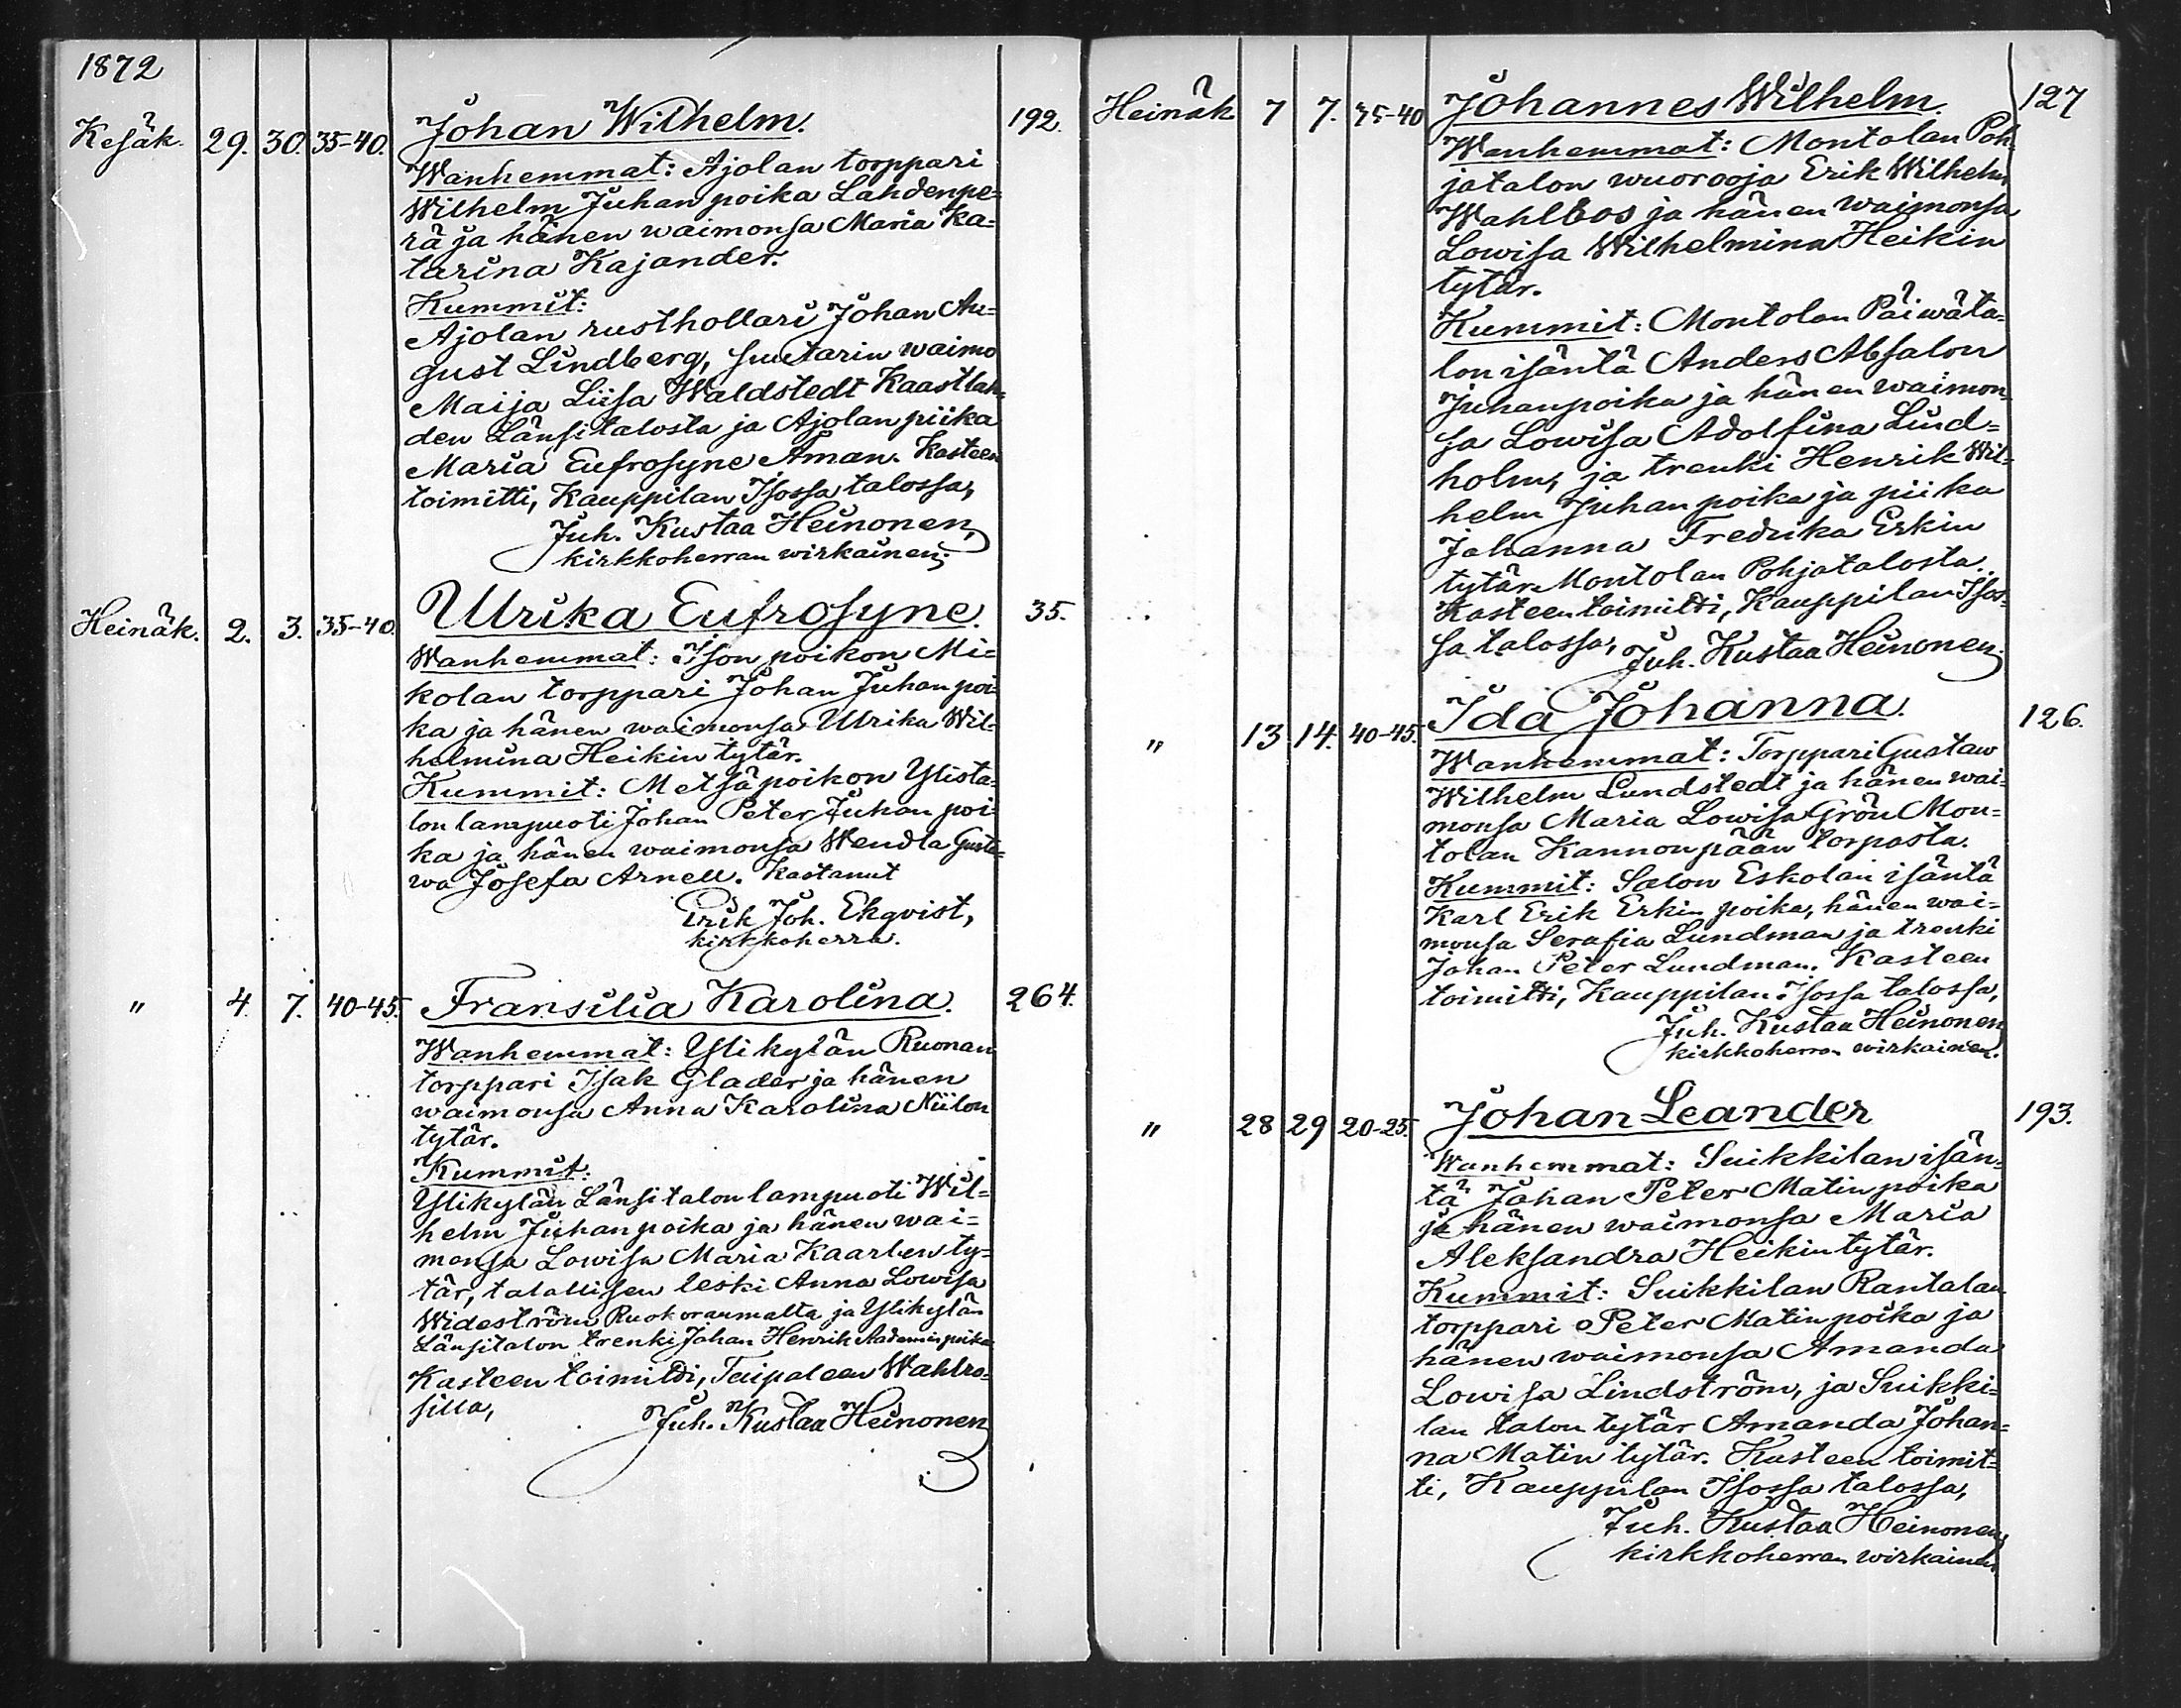 1872
Kesäk. 29. 30. 35-40. Johan Wilhelm. 192.
Wanhemmat: Ajolan torppari
Wilhelm Juhan poika Lahdenpe-
rä ja hänen waimonsa Maria Ka-
tarina Kajander.
Kummit:
Ajolan rusthollari Johan Au-
gust Lindberg, suutarin waimo
Maija Liisa Waldstedt Kaastlah-
den Länsitalosta ja Ajolan piika
Maria Eufrosyne Aman. Kasteen
toimitti, Kauppilan Isossa talossa,
Juh. Kustaa Heinonen,
kirkkoherran wirkainen.
Heinäk. 2. 3. 35-40. Ulrika Eufrosyne. 35.
Wanhemmat: Ison poikon Mi-
kolan torppari Johan Juhan poi-
ka ja hänen waimonsa Ulrika Wil-
helmina Heikin tytär.
Kummit: Metsäpoikon Ylista-
lon lampuoti Johan Peter Juhan poi-
ka ja hänen waimonsa Wendla Gusta-
wa Josefa Arnell. Kastanut
Erik Joh. Ekqvist,
kirkkoherra.
" 4 7. 40-45. Fransilia Karolina. 264.
Wanhemmat: Ylikylän Ruonan
torppari Isak Glader ja hänen
waimonsa Anna Karolina Niilon
tytär.
Kummit:
Ylikylän Länsitalon lampuoti Wil-
helm Juhan poika ja hänen wai-
monsa Lowisa Maria Kaarlen ty-
tär, talollisen leski Anna Lowisa
Wideström Ruokoraumalta ja Ylikylän
Länsitalon trenki Johan Henrik Aadamin poika
Kasteen toimitti, Taipaleen Wahlro-
silla,
Juh. Kustaa Heinonen
Heinäk 7 7. 35-40 Johannes Wilhelm. 127
Wanhemmat: Montolan Poh-
jatalon wuorooja Erik Wilhelm
Wahlroos ja hänen waimonsa
Lowisa Wilhelmina Heikin
tytär.
Kummit: Montolan Päiwäta-
lon isäntä Anders Absalon
Juhanpoika ja hänen waimon-
sa Lowisa Adolfina Lind-
holm, ja trenki Henrik Wil-
helm Juhan poika ja piika
Johanna Fredrika Erkin
tytär Montolan Pohjatalosta.
Kasteen toimitti, Kauppilan Isos-
sa talossa,
Juh. Kustaa Heinonen.
" 13 14. 40-45. Ida Johanna. 126.
Wanhemmat: Torppari Gustaw
Wilhelm Lundstedt ja hänen wai-
monsa Maria Lowisa Grön Mon-
tolan Kannonpään torpasta.
Kummit: Salon Eskolan isäntä
Karl Erik Erkin poika, hänen wai-
monsa Serafia Lundman ja trenki
Johan Peter Lundman. Kasteen
toimitti, Kauppilan Isossa talossa,
Juh. Kustaa Heinonen
kirkkoherran wirkainen.
" 28 29 20-25. Johan Leander 193.
Wanhemmat: Suikkilan isän-
tä Johan Peter Matin poika
ja hänen waimonsa Maria
Aleksandra Heikin tytär.
Kummit: Suikkilan Rantalan
torppari Peter Matin poika ja
hänen waimonsa Amanda
Lowisa Lindström, ja Suikki-
lan talon tytär Amanda Johan-
na Matin tytär. Kasteen toimit-
ti, Kauppilan Isossa talossa,
Juh. Kustaa Heinonen,
kirkkoherran wirkainen.